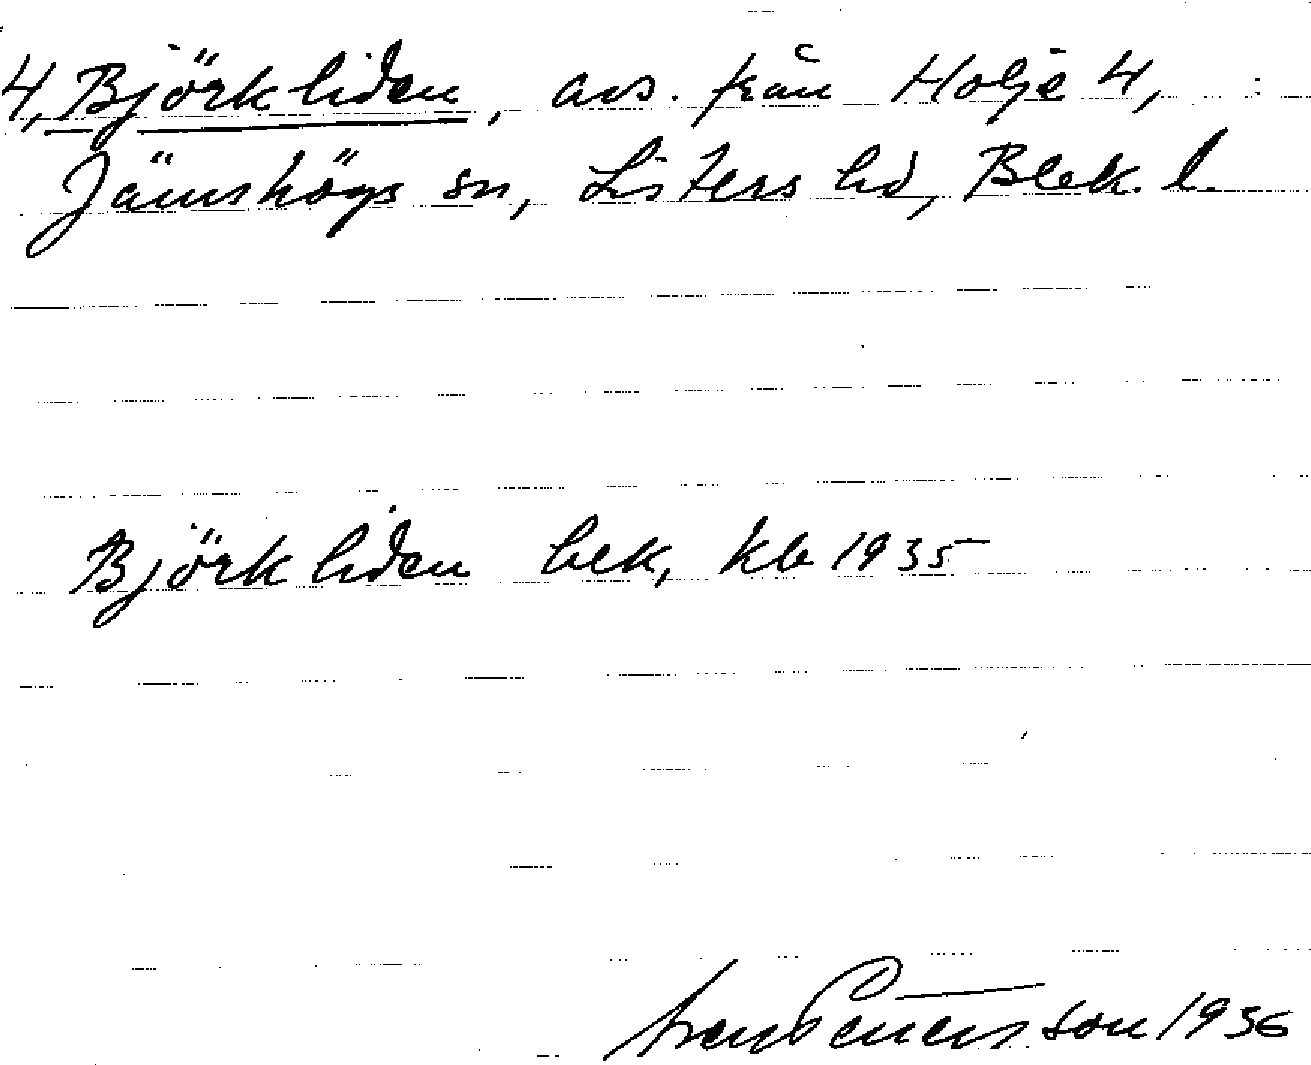 4, Björkliden, avs. från Holje 4,
Jämshögs sn, Listers hd, Blek. l.
Björkliden bek, kb 1935
Sven Petterson 1936